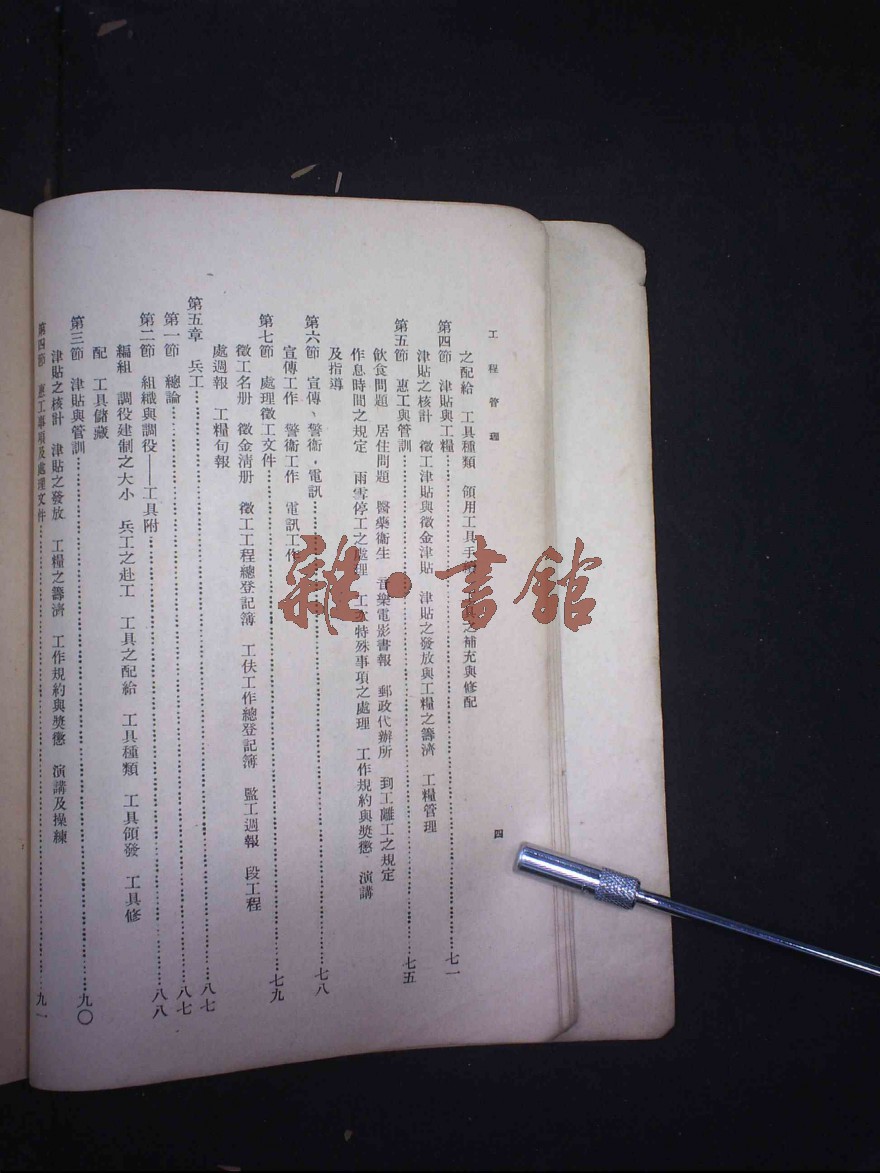 工程管理
四
之配給　工具種類　領用工具手　具之補充與修配
第四節　津貼與工糧………七一
津貼之核計　徵工津貼與徵金津貼　津貼之發放與工糧之籌濟　工糧管理
第五節　惠工與管訓………七五
飲食問題　居住問題　醫藥衛生　音樂電影書報　郵政代辦所　到工離工之規定
作息時間之規定　雨雪停工之處理　工　特殊事項之處理　工作規約與獎懲　演講
及指導
第六節　宣傳、警衞・電訊………七八
宣傳工作　警衞工作　電訊工作
第七節　處理徵工文件………七九
徵工名册　徵金淸册　徵工工程總登記簿　工伕工作總登記簿　監工週報　段工程
處週報　工糧旬報
第五章　兵工………八七
第一節　總論………八七
第二節　組織與調役——工具附………八八
編組　調役建制之大小　兵工之赴工　工具之配給　工具種類　工具領發　工具修
配　工具儲藏
第三節　津貼與管訓………九〇
津貼之核計　津貼之發放　工糧之籌濟　工作規約與獎懲　演講及操練
第四節　惠工事項及處理文件………九一
雜・書館